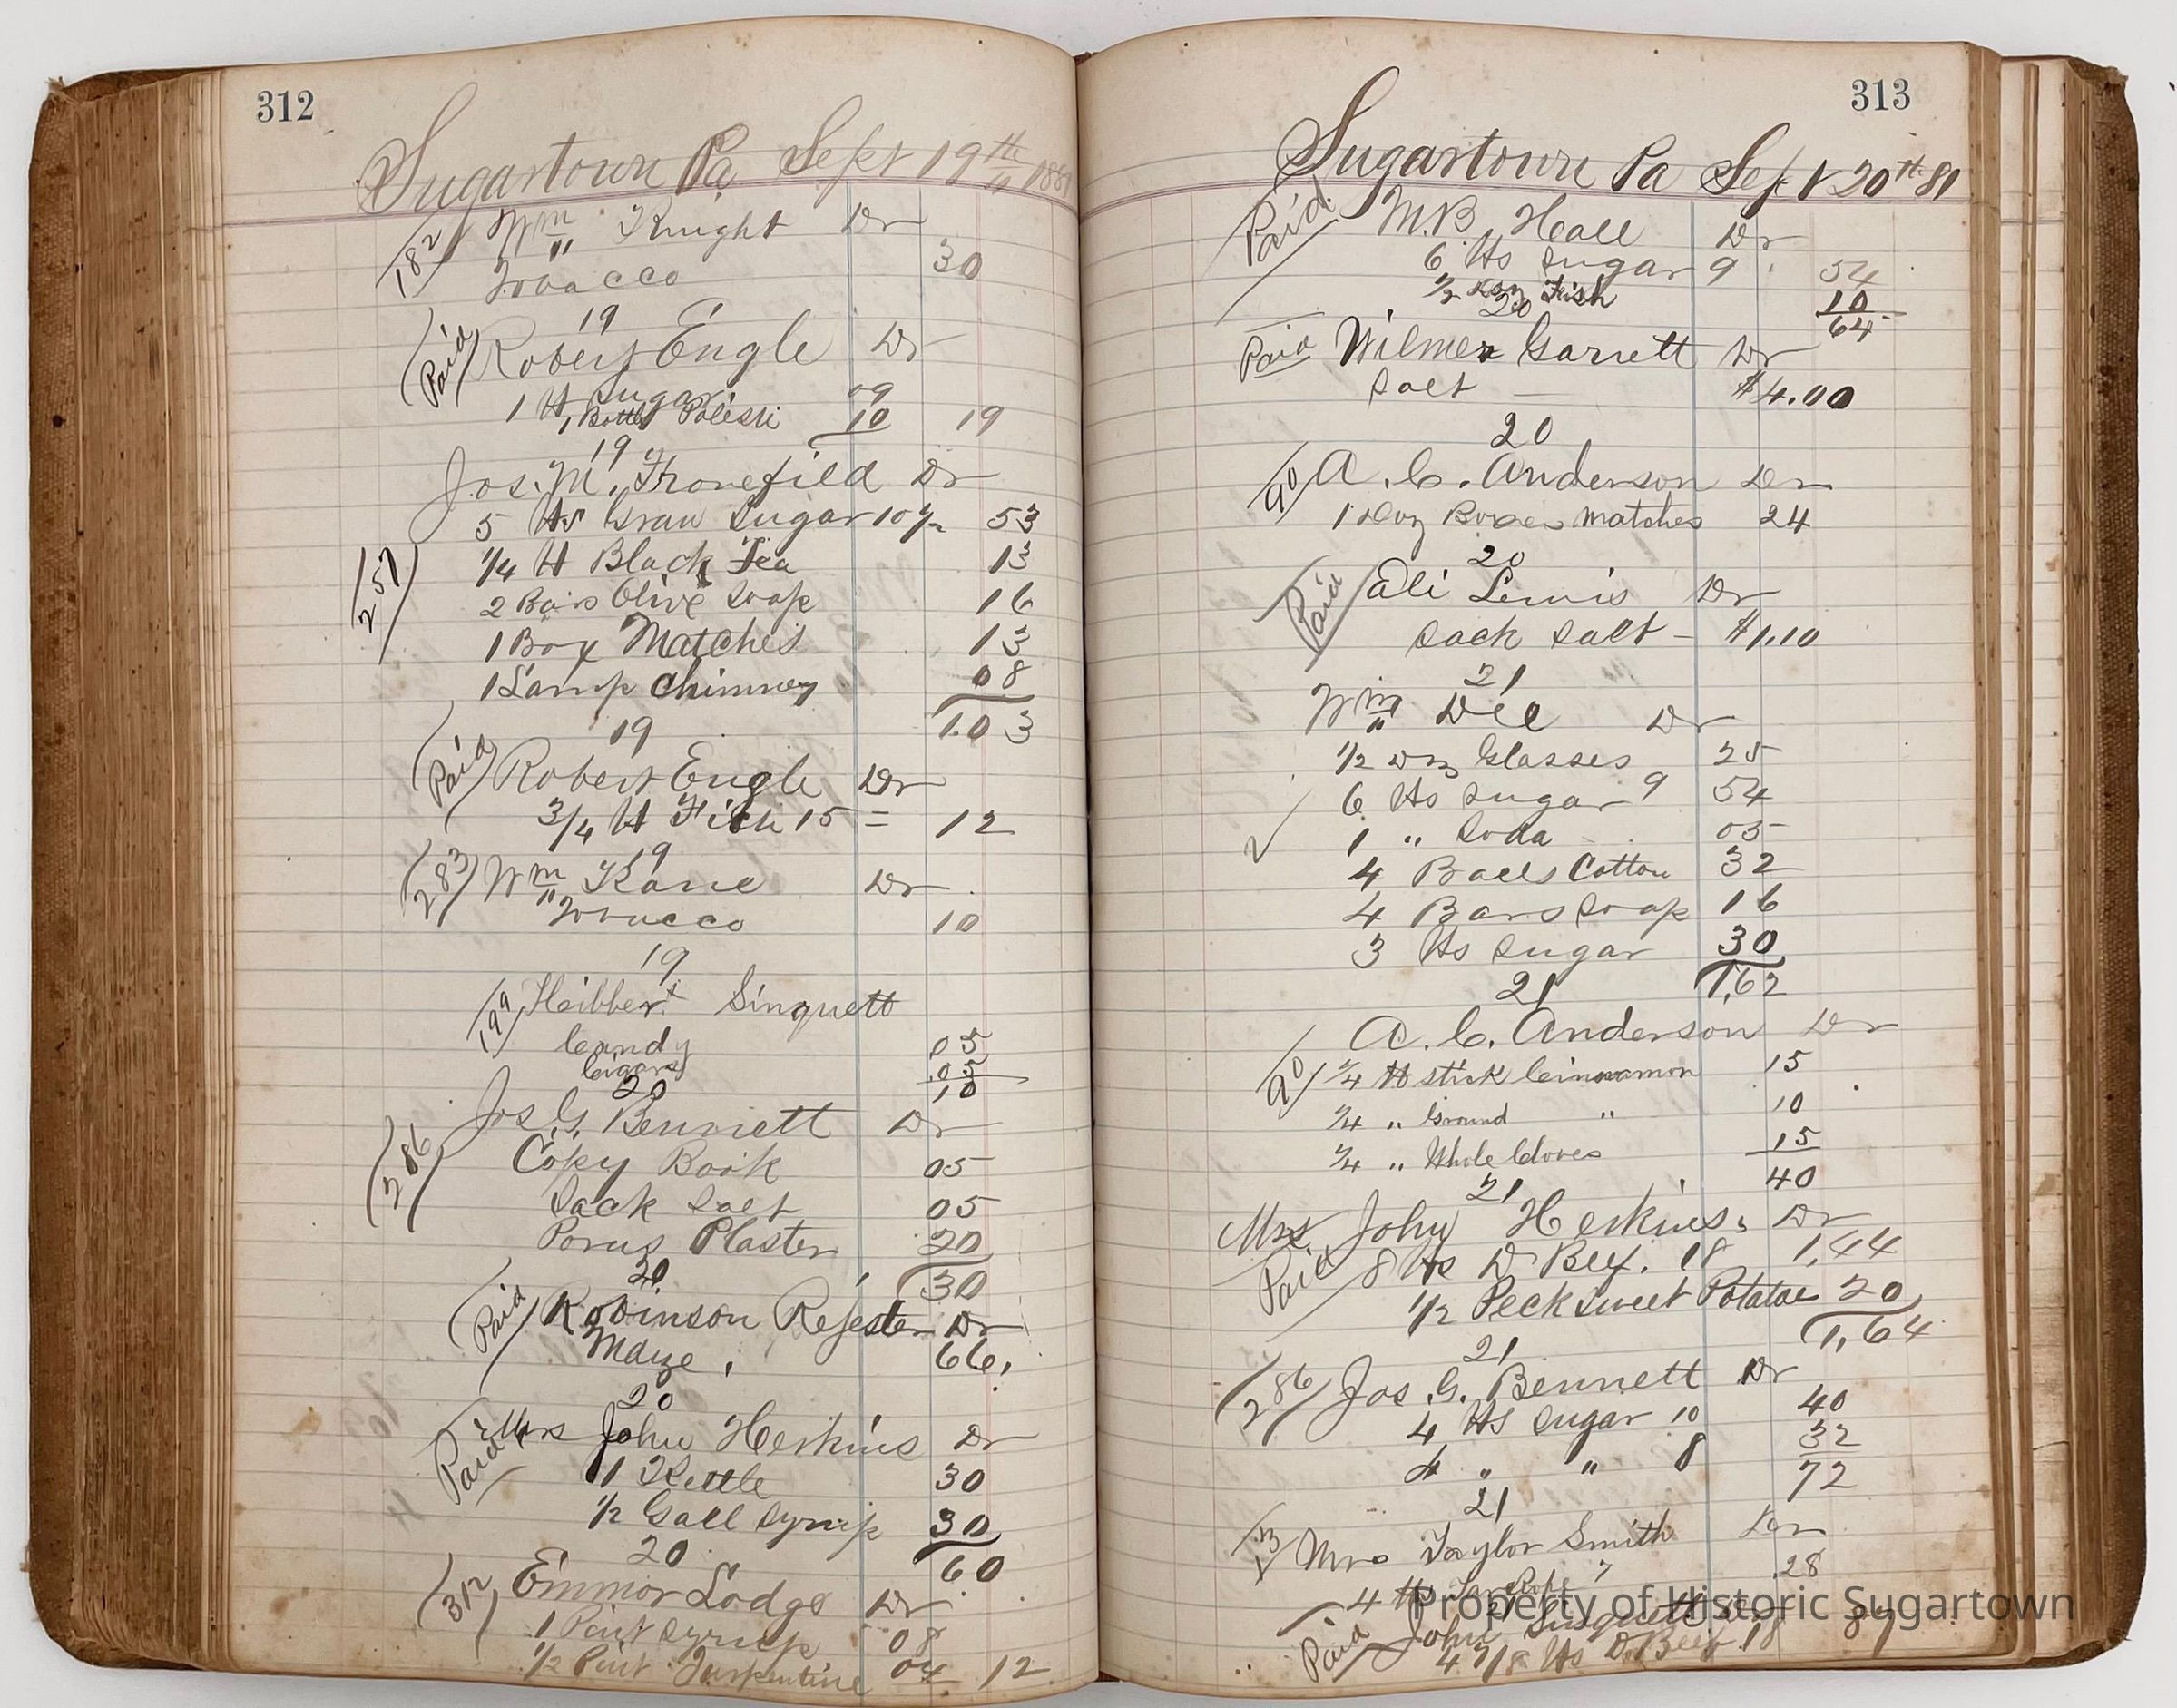 312
Sugartown Pa Sept 19th 1881
182 Wm Knight Dr
Tobacco 30
19
Paid Robert Engle Dr
1 lb Sugar 09
1 Bottle Polish 10 19
19
Jos. M. Fronefield Dr
5 lbs Gran Sugar 10½ 53
¼ lb Black Tea 13
257 2 Bars Olive Soap 16
1 Box Matches 13
1 Lamp Chimney 08
1.03
19
Paid Robert Engle Dr
3/4 lb Fish 15 = 12
19
283 Wm Kane Dr
Tobacco 10
19
199 Hibbert Sinquett
Candy 05
Cigars 05
20 10
Jos. G. Bennett Dr
286 Copy Book 05
Sack Salt 05
Porus Plaster 20
20 30
Paid Robinson Rejester Dr
Maize, 66,
20
Paid Mrs John Herkins Dr
1 Kettle 30
1/2 Gall Syrup 30
20 60
312 Emmor Lodge Dr
1 Pint Syrup 08
1/2 Pint Turpentine 04 12
313
Sugartown Pa Sept 20th 81
Paid M.B. Hall Dr
6 lbs Sugar 9 54
½ doz Fish 10
20 64
Paid Wilmer Garrett Dr
Salt - $4.00
20
90 A. C. Anderson Dr
1 Doz Boxes Matches 24
20
Paid Eli Lewis Dr
Sack Salt - $1.10
21
Wm Dee Dr
1/2 Doz Glasses 25
6 lbs Sugar 9 54
1 " Soda 05
4 Balls Cotton 32
4 Bars Soap 16
3 lbs Sugar 30
21 1,62
A. C. Anderson Dr
90 ¼ lb Stick Cinnamon 15
¼ " Ground " 10
¼ " Whole Cloves 15
21 40
Mrs John Herkins, Dr
Paid 8 lbs D Beef. 18 1,44
1/2 Peck Sweet Potatoe 20
1,64
21
286 Jos. G. Bennett Dr
4 lbs Sugar 10 40
4 " " 8 32
72
21
Mrs Taylor Smith Dr
4 lb 28
Paid John Sinquett Dr 87
4 7/8 lbs D. Beef 18
Property of Historic Sugartown